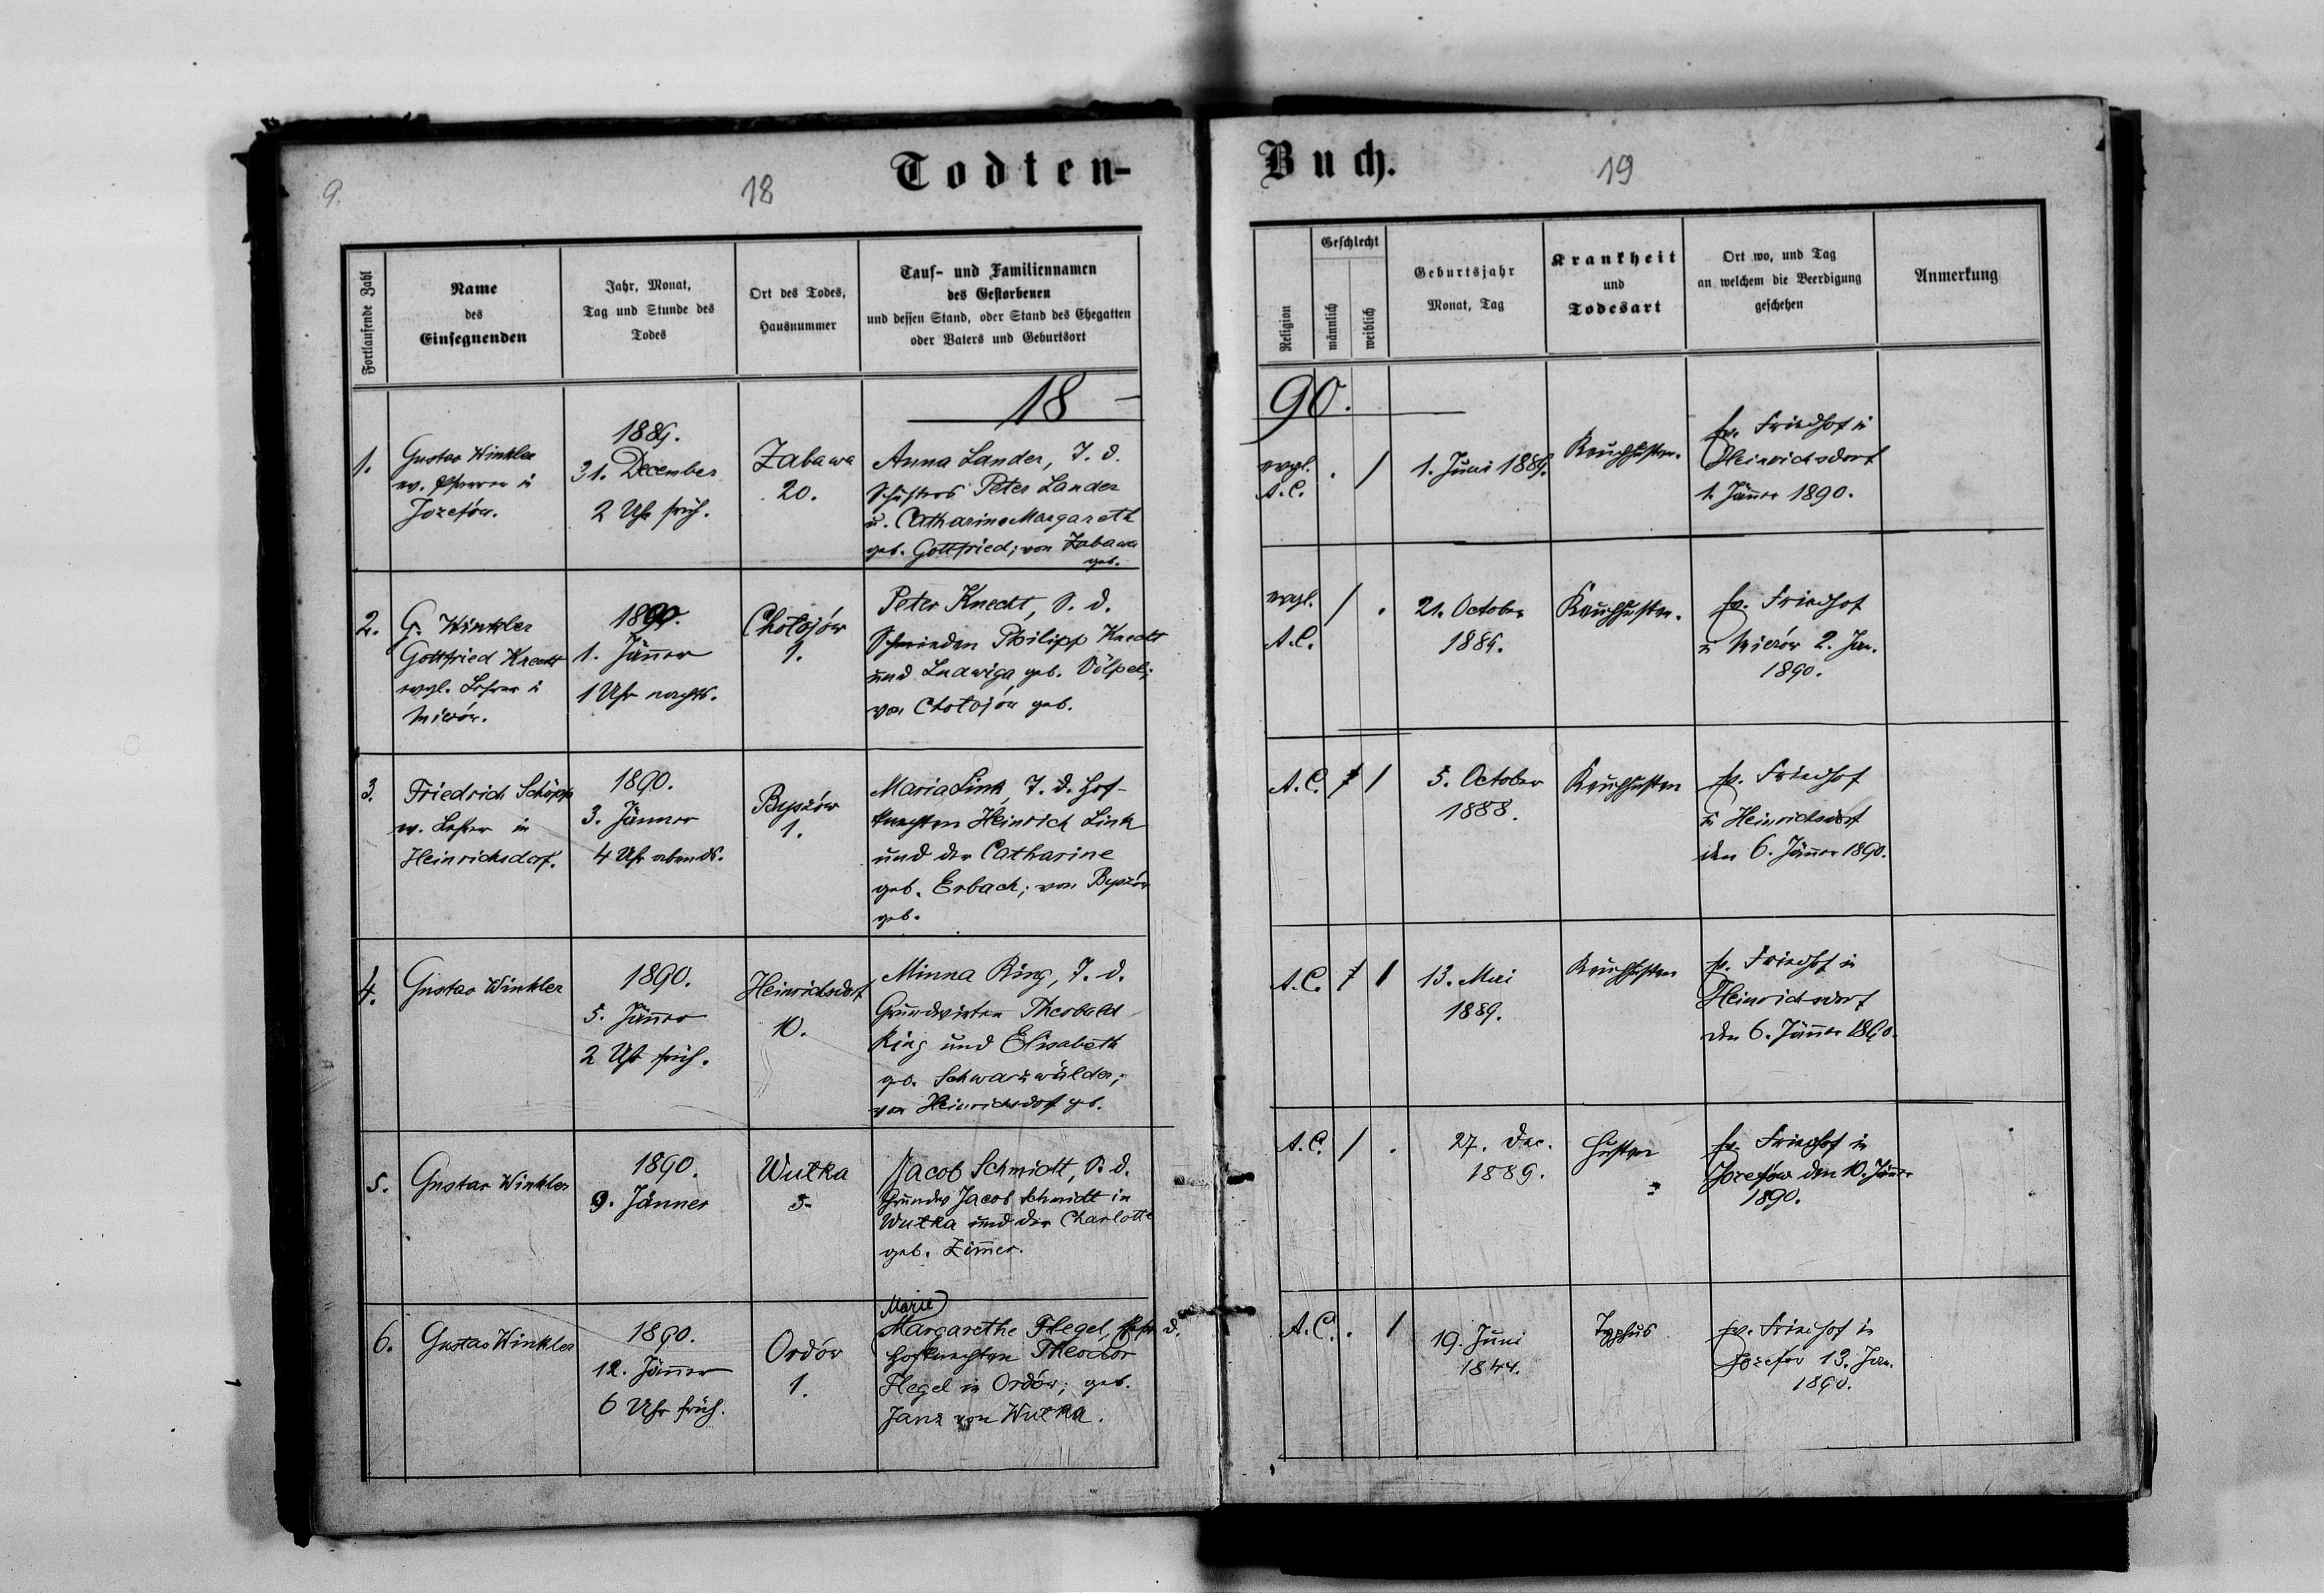 9.
18
Todten-
Buch.
19
Fortlaufende Zahl
Name
des
Einsegnenden
Jahr, Monat,
Tag und Stunde des
Todes
Ort des Todes,
Hausnummer
Tauf- und Familiennamen
des Gestorbenen
und dessen Stand, oder Stand des Ehegatten
oder Vaters und Geburtsort
Religion
Geschlecht
männlich
weiblich
Geburtsjahr
Monat, Tag
Krankheit
und
Todesart
Ort wo, und Tag
an welchem die Beerdigung
geschehen
Anmerkung
18
90.
1.
Gustav Winkler
ev. Pfarrer in
Jozefów.
1889.
31. December
2 Uhr früh.
Zabawa
20.
Anna Lander, T. d.
Schusters Peter Lander
u. Catharina Margareth
geb. Gottfried; von Zabawa
geb.
evgl.
A.C.
. /
1. Juni 1889.
Keuchhusten.
ev. Friedhof in
Heinrichsdorf
1. Jänner 1890.
2.
G. Winkler
Gottfried Knecht
evgl. Lehrer in
1890.
1. Jänner
1 Uhr nachts.
Chołojów
1.
Peter Knecht, S. d.
Philipp Knecht
und Ludwiga geb. Völpel;
von Chołojów geb.
evgl.
A.C.
/ .
21. October
1889.
Keuchhusten.
ev. Friedhof
2. Jan.
1890.
3.
Friedrich Schöpp
ev. Lehrer in
Heinrichsdorf.
1890.
3. Jänner
4 Uhr abends.
Byszów
1.
Maria Link, T. d. Hof-
knechten Heinrich Link
und der Catharine
geb. Erbach; von Byszów
geb.
A.C.
/
5. October
1888.
Keuchhusten
ev. Friedhof
zu Heinrichsdorf
den 6. Jänner 1890.
4.
Gustav Winkler
1890.
5. Jänner
2 Uhr früh.
Heinrichsdorf
10.
Minna Ring, T. d.
Grundwirten Theobald
Ring und Elisabeth
geb. Schwarzwälder;
von Heinrichsdorf geb.
A.C.
/
13. Mai
1889.
Keuchhusten
ev. Friedhof in
Heinrichsdorf
den 6. Jänner 1890.
5.
Gustav Winkler
1890.
9. Jänner
Wutka
5.
Jacob Schmidt, S. d.
Jacob Schmidt in
Wutka und der Charlotte
geb. Zimmer.
A.C.
/ .
27. Dec.
1889.
Husten
ev. Friedhof in
Jozefów den 10. Jänner
1890.
6.
Gustav Winkler
1890.
12. Jänner
6 Uhr früh.
Ordów
1.
Marie
Margarethe Flegel, d.
Hofknechten Theodor
Flegel in Ordów; geb.
Janz von Wutka.
A.C.
. /
19. Juni
1844.
Typhus
ev. Friedhof in
Jozefów 13. Jan.
1890.